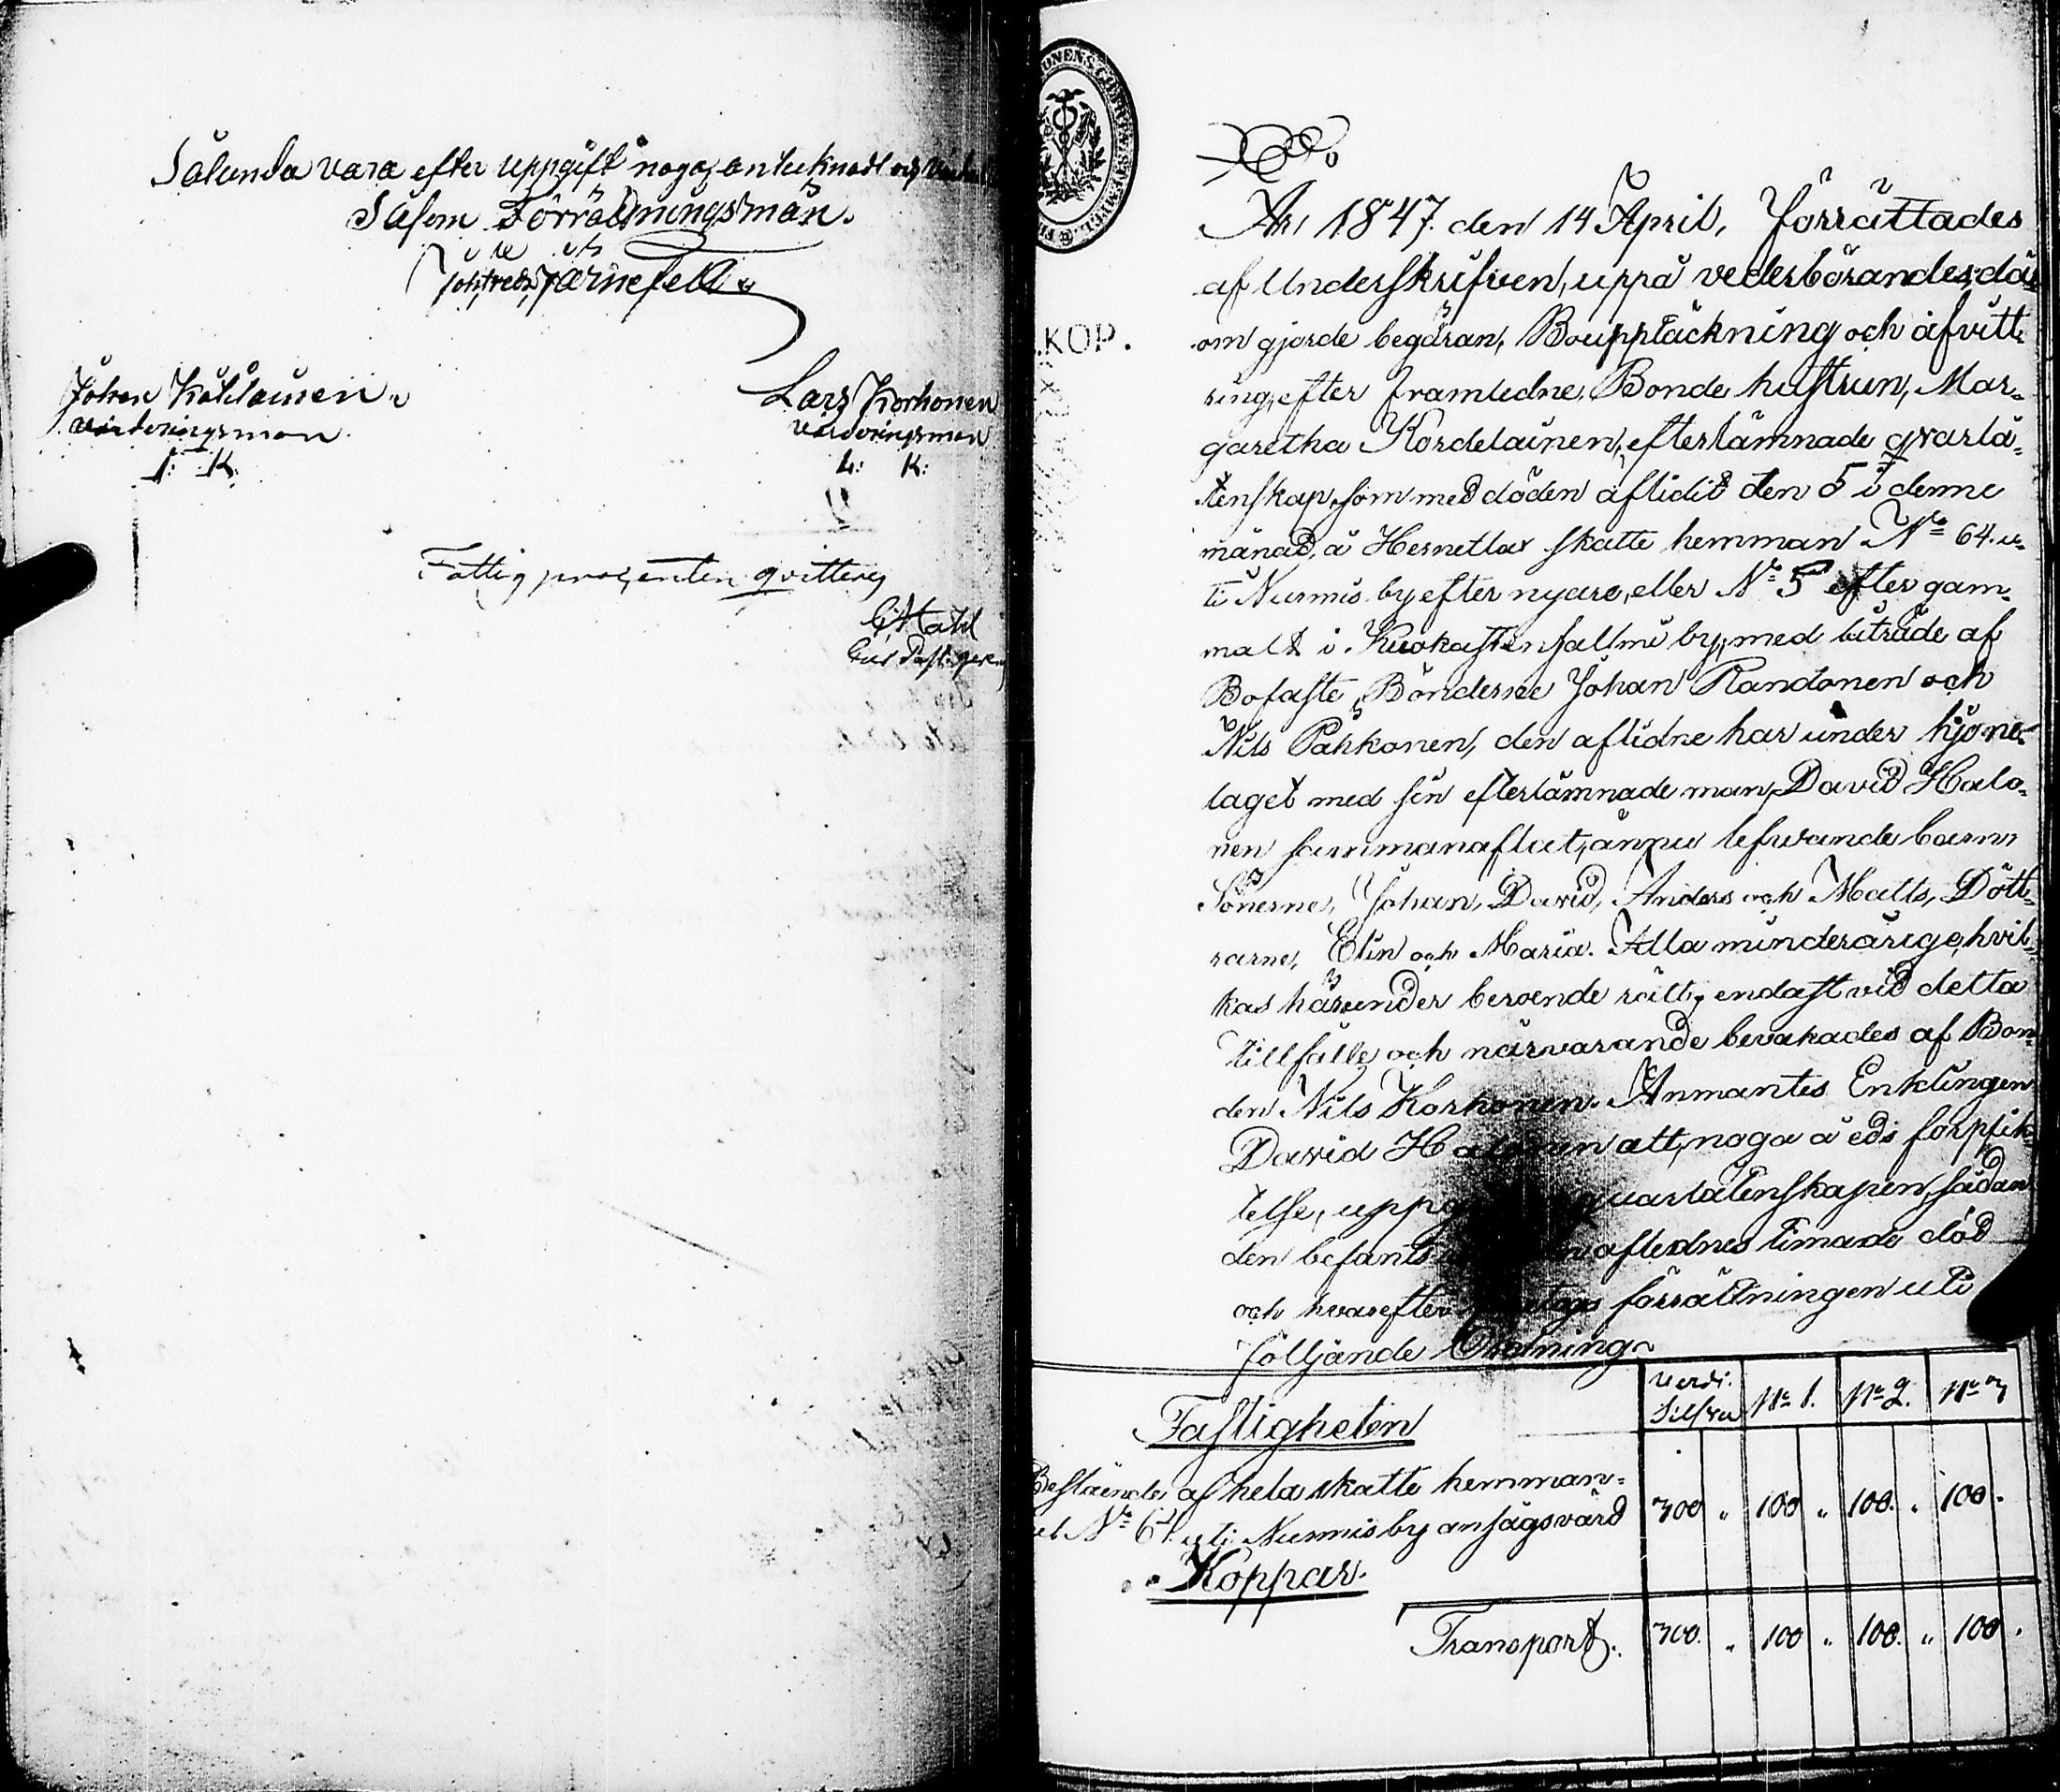 Sålunda vara efter uppgift noga antecknadt och
Såsom Förrättningsmän.
Järnefelt
Johan
värderingsman
J: K:
Lars Korhonen
värderingsman
L: K:
Fattigprocenten qvitteras
KOP.
År 1847. den 14 April, förrättades
af Underskrifven, uppå vederbörandes där
om gjorde begäran, Bouppläckning och afvitt-
ring, efter framledne, Bonde hustrun, Mar-
garetha Kordelainen, efterlämnade qvarlå-
tenskap, som med döden aflidit den 5 i denne
månad, å Hernetlax skatte hemman No 64. u-
ti Nurmis by efter nyare, eller No 5 efter gam-
malt i by, med biträde af
Bofaste, Bönderne Johan Randonen och
Nils Pahkonen, den aflidne har under hjone-
laget med sin efterlämnade man, David Halo-
nen sammanaflat, ännu lefwande barn,
Sönerne, Johan, David, Anders och Matts, Dött-
rarne, Elin och Maria. Alla minderårige, hvil-
kas härunder beroende rätt, endast vid detta
tillfälle och närvarande bevakades af Bon-
den Nils Korhonen. Anmantes Enklingen
David Halonen att, noga å eds förplik-
telse, uppg qvarlåtenskapen, sådan
den befants aflednes timade död
och hvarefter förrättningen uti
följande Ordning.
Verdi. Silfver No 1. No 2. No 3
Fastigheten
Bestående, af hela skatte hemman-
et No 64. uti Nurmis by ansågs värd 300 " 100 " 100. " 100.
Koppar.
Transport. 300. " 100 " 100. " 100.